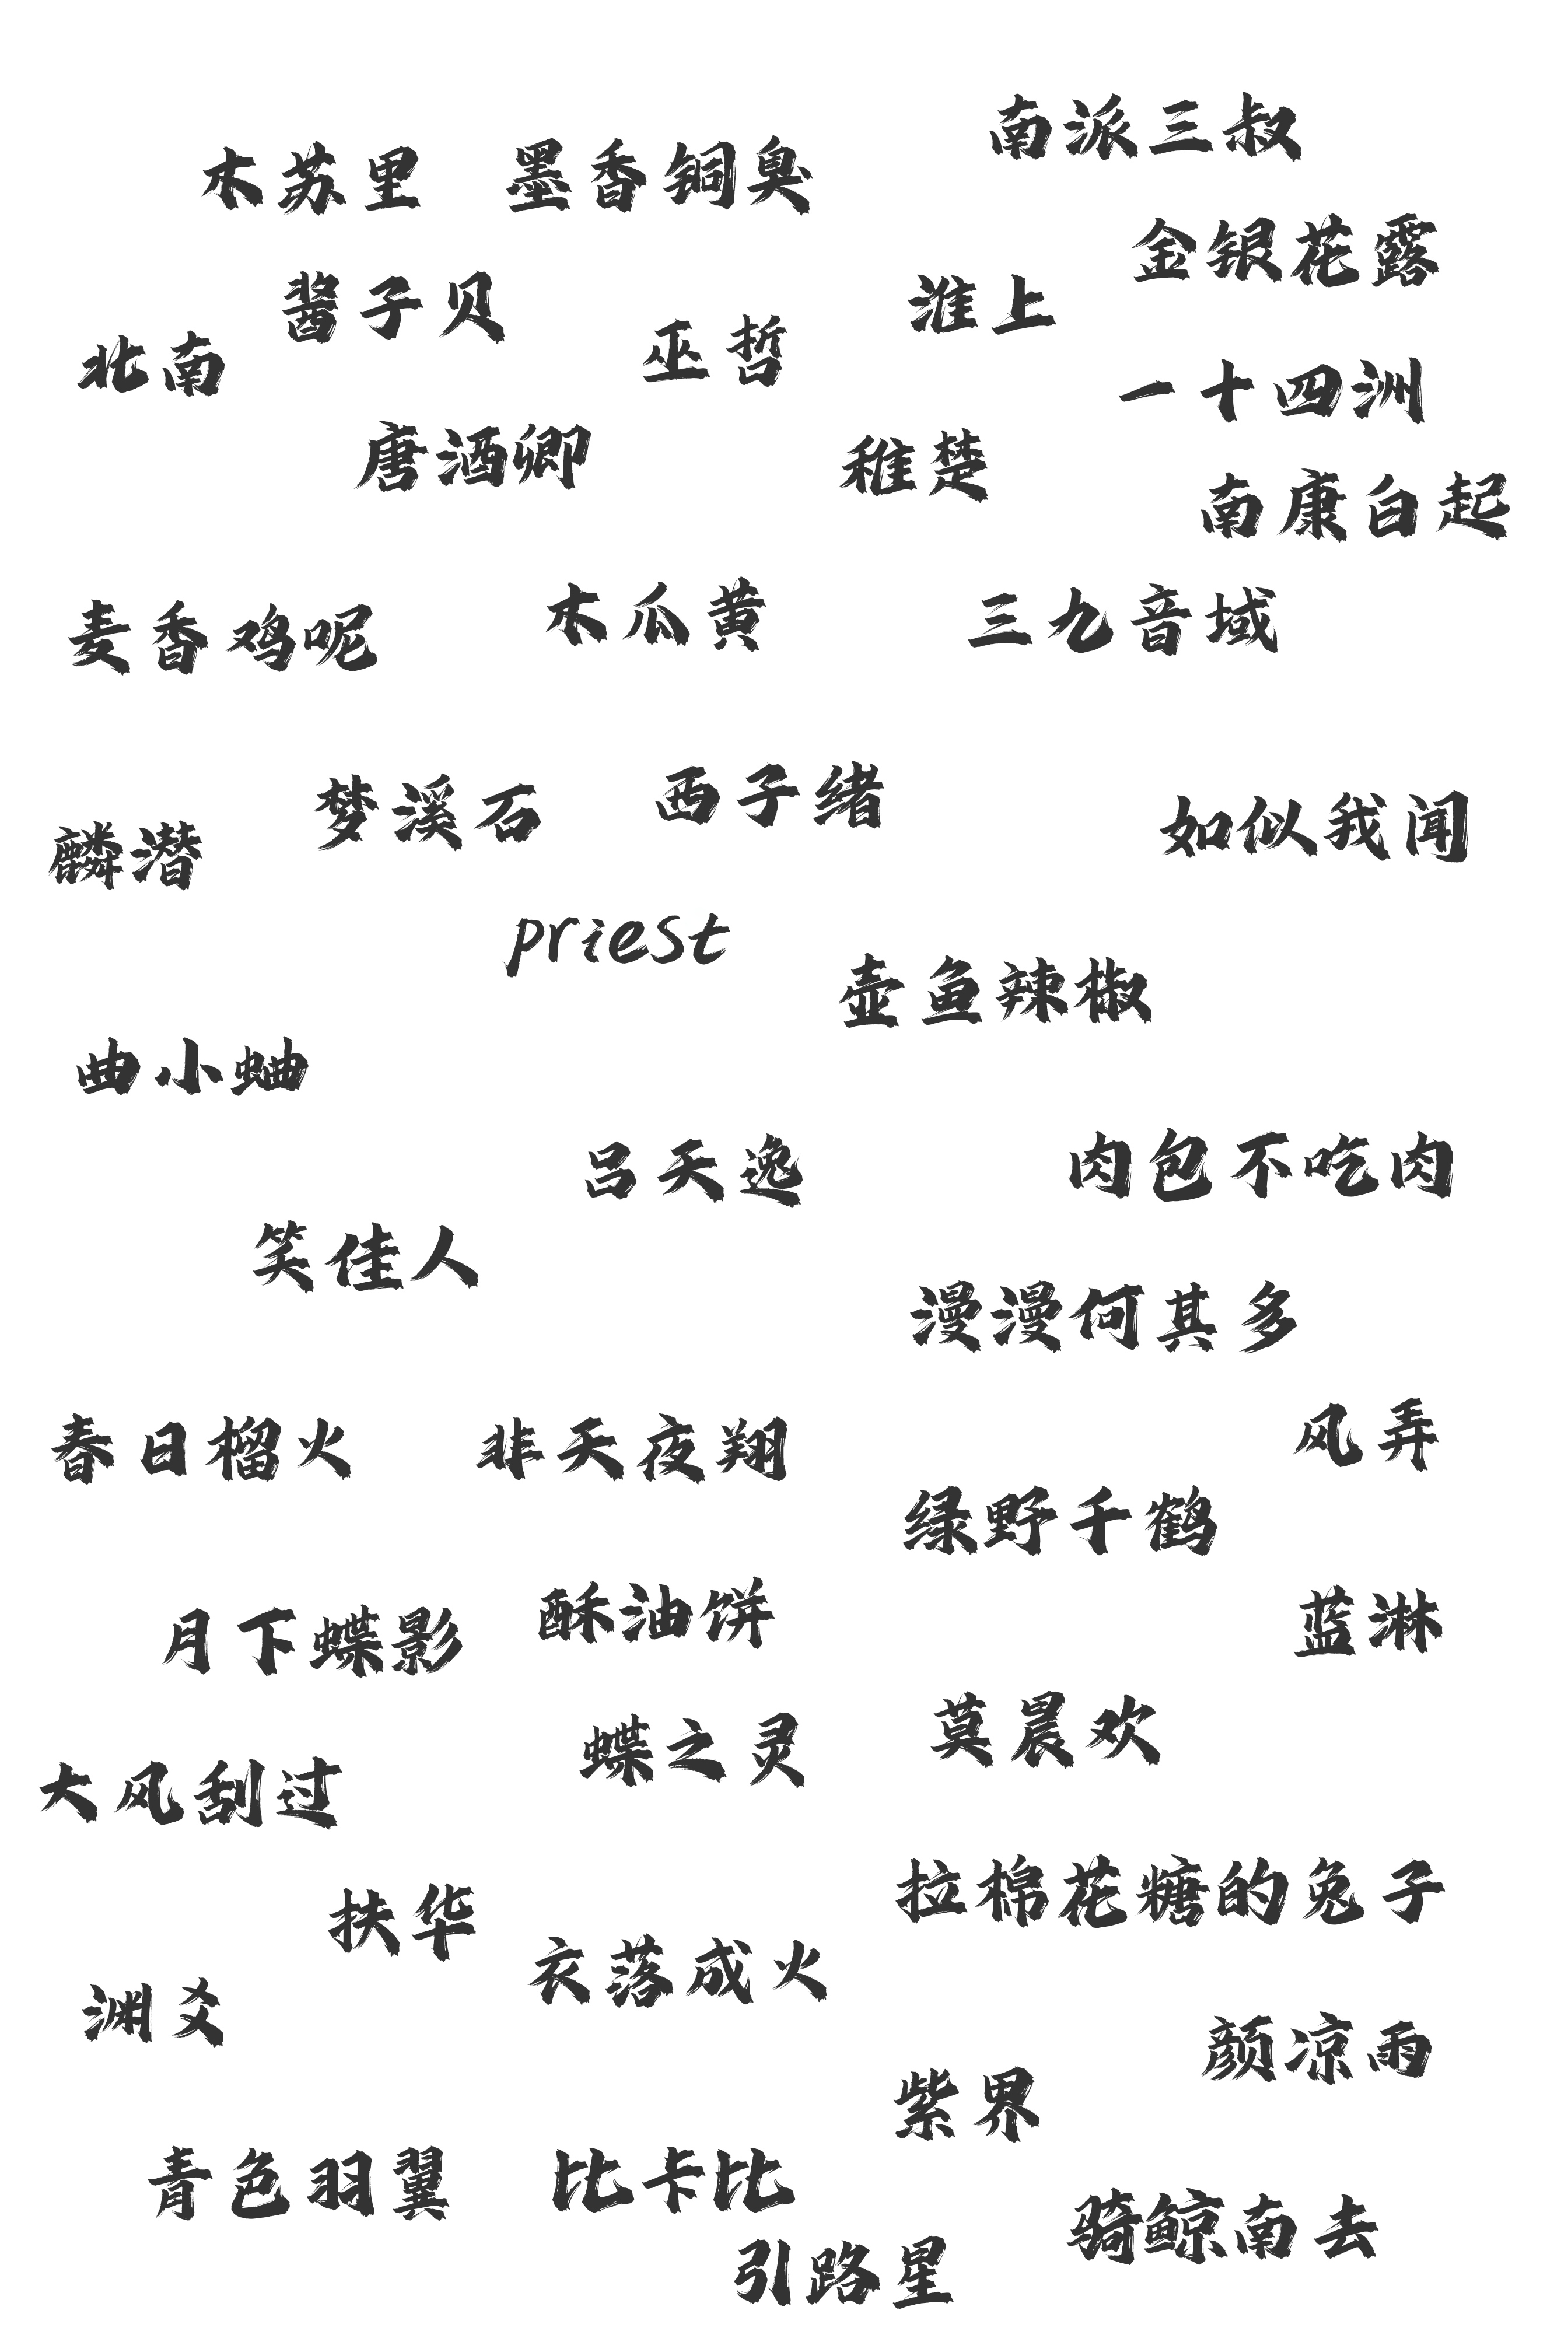 南派三叔
木苏里
墨香铜臭
金银花露
酱子贝
淮上
北南
巫哲
一十四洲
唐酒卿
稚楚
南康白起
麦香鸡呢
木瓜黄
三九音域
梦溪石
西子绪
如似我闻
麟潜
priest
壶鱼辣椒
曲小蛐
吕天逸
肉包不吃肉
笑佳人
漫漫何其多
春日榴火
非天夜翔
风弄
绿野千鹤
月下蝶影
酥油饼
蓝淋
莫晨欢
蝶之灵
大风刮过
拉棉花糖的兔子
扶华
衣落成火
渊爻
颜凉雨
紫界
青色羽翼
比卡比
骑鲸南去
引路星